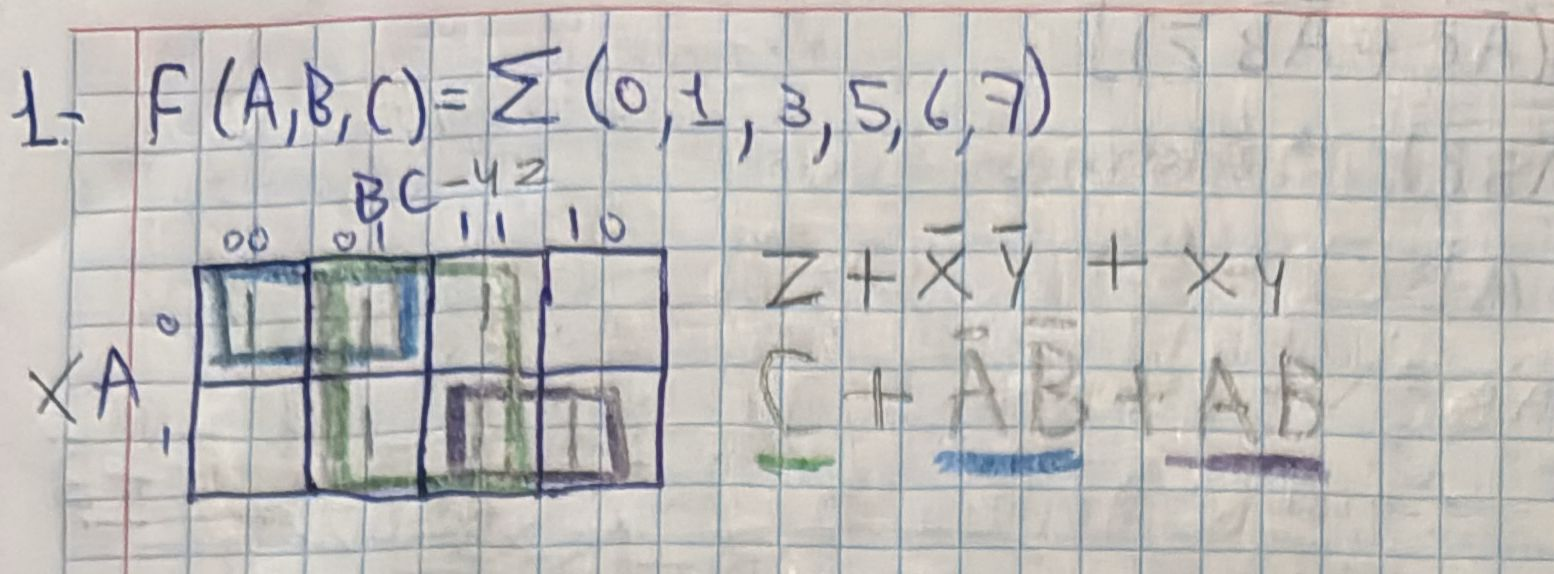 1.- F(A,B,C)=Σ(0,1,3,5,6,7)
BC-YZ
00 01 11 10
XA
0 1 1 1
1 1 1 1
Z+X̄Ȳ+XY
C+ĀB̄+AB